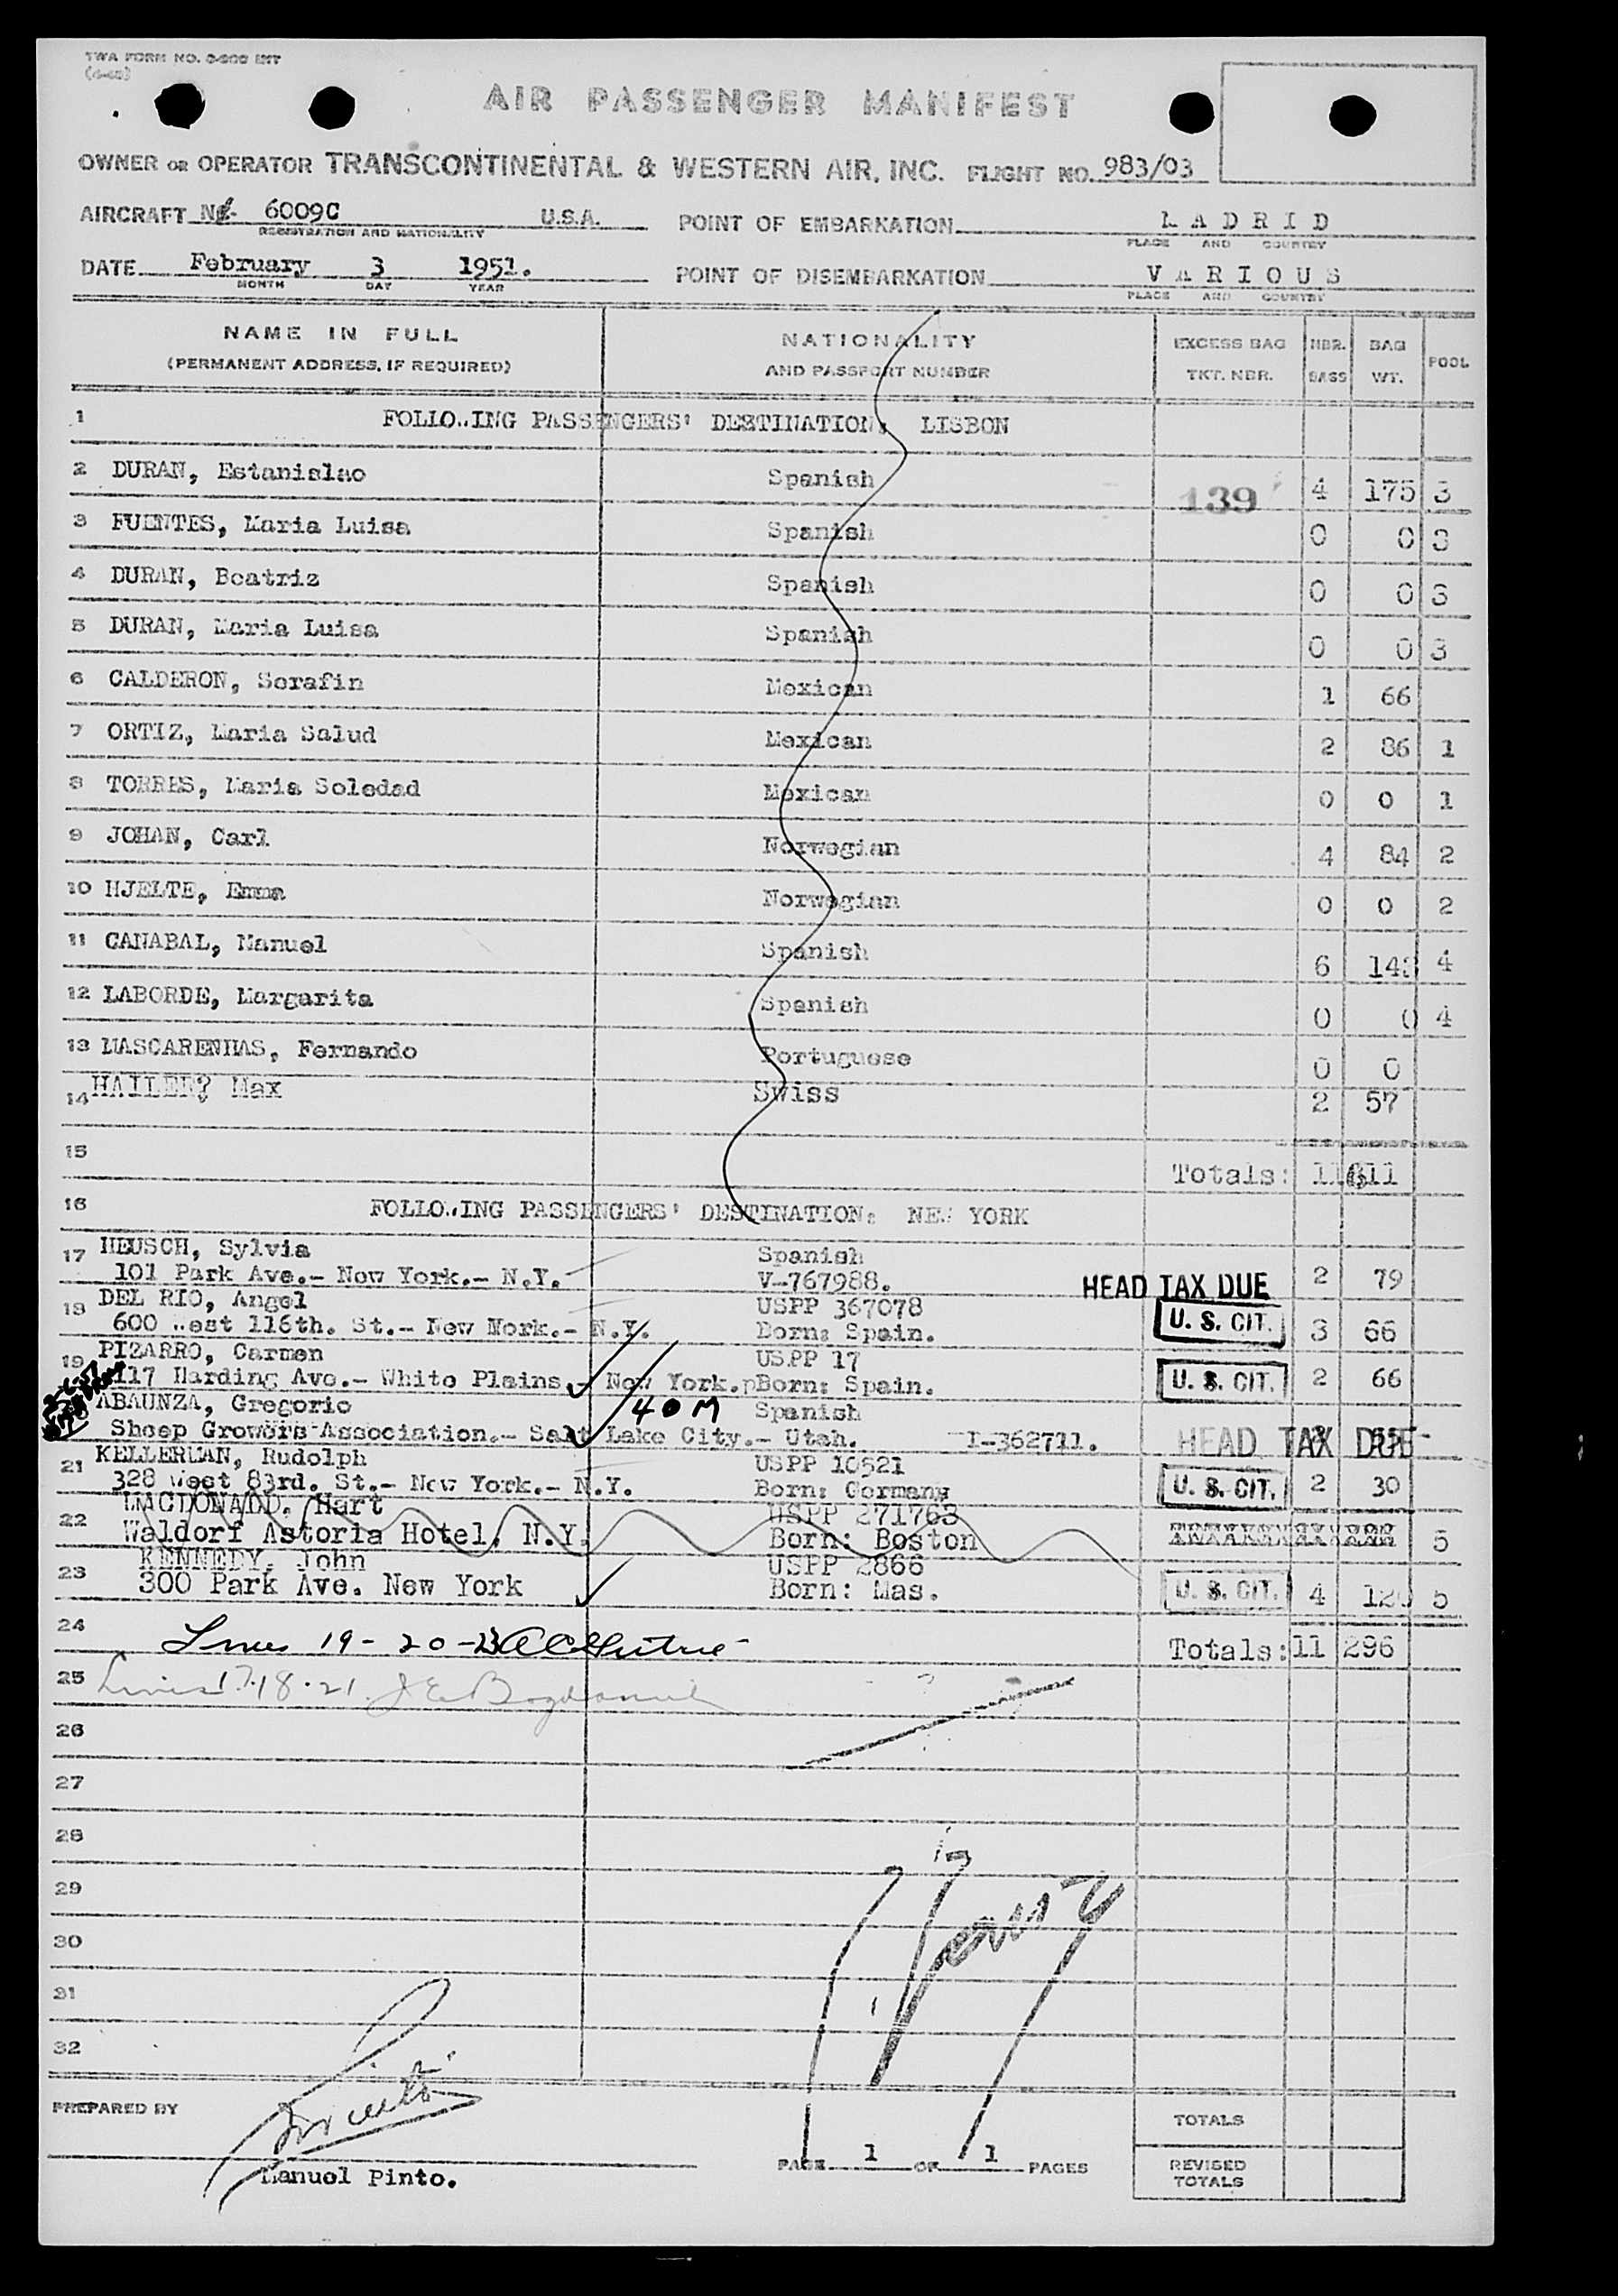 TWA FORM NO.
AIR PASSENGER MANIFEST
OWNER OR OPERATOR TRANSCONTINENTAL & WESTERN AIR, INC. FLIGHT NO. 983/03
AIRCRAFT 6009C U.S.A. POINT OF EMBARKATION MADRID
REGISTRATION AND NATIONALITY PLACE AND COUNTRY
DATE February 3 1951. POINT OF DISEMBARKATION VARIOUS
MONTH DAY YEAR PLACE AND COUNTRY
NAME IN FULL NATIONALITY EXCESS BAG NBR. BAG POOL
(PERMANENT ADDRESS, IF REQUIRED) AND PASSPORT NUMBER TKT. NBR. BAGS WT.
1 FOLLOWING PASSENGERS' DESTINATION: LISBON
2 DURAN, Estanislao Spanish 139 4 175 3
3 FUENTES, Maria Luisa Spanish 0 0 3
4 DURAN, Beatriz Spanish 0 0 3
5 DURAN, Maria Luisa Spanish 0 0 3
6 CALDERON, Serafin Mexican 1 66
7 ORTIZ, Maria Salud Mexican 2 86 1
8 TORRES, Maria Soledad Mexican 0 0 1
9 JOHAN, Carl Norwegian 4 84 2
10 HJELTE, Emma Norwegian 0 0 2
11 CANABAL, Manuel Spanish 6 143 4
12 LABORDE, Margarita Spanish 0 0 4
13 MASCARENHAS, Fernando Portuguese 0 0
14 Max Swiss 2 57
15 Totals:
16 FOLLOWING PASSENGERS' DESTINATION: NEW YORK
17 HEUSCH, Sylvia Spanish
101 Park Ave.- New York.- N.Y. V-767988. HEAD TAX DUE 2 79
18 DEL RIO, Angel USPP 367078
600 West 116th. St.- New York.- N.Y. Born: Spain. U. S. CIT. 3 66
19 PIZARRO, Carmen USPP 17
117 Harding Ave.- White Plains.- New York. Born: Spain. U. S. CIT. 2 66
ABAUNZA, Gregorio 40 M Spanish
Sheep Growers Association.- Salt Lake City.- Utah. I-362711. HEAD TAX DUE
21 KELLERMAN, Rudolph USPP 10521
328 West 83rd. St.- New York.- N.Y. Born: Germany U. S. CIT. 2 30
22 MACDONALD, Hart USPP 271763
Waldorf Astoria Hotel, N.Y. Born: Boston 5
23 KENNEDY, John USPP 2866
300 Park Ave. New York Born: Mas. U. S. CIT. 4 120 5
24 Lines 19 - 20 - Totals: 11 296
25 Lines 17.18.21
26
27
28
29
30
31
32
PREPARED BY TOTALS
Manuel Pinto. PAGE 1 OF 1 PAGES REVISED TOTALS